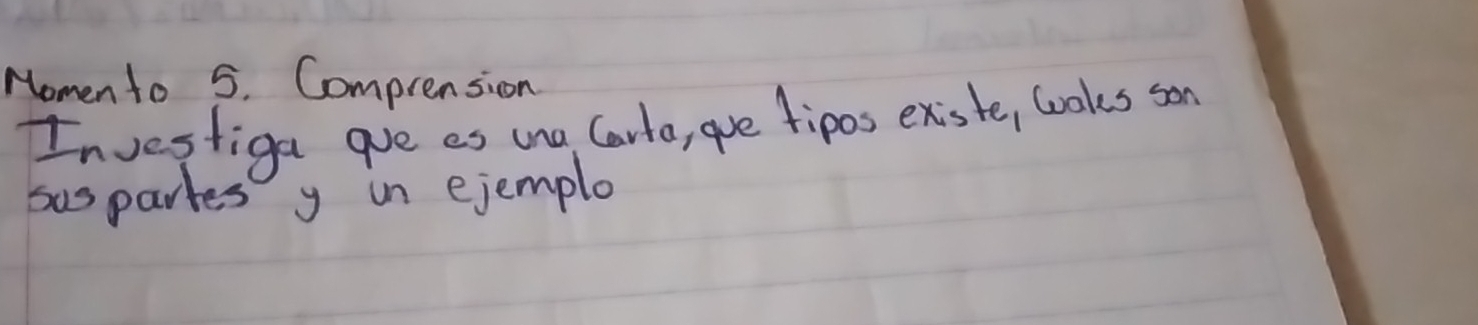 Momento 5. Comprension
Investiga que es una Carta, que tipos existe, Cuales son
sus partes y un ejemplo